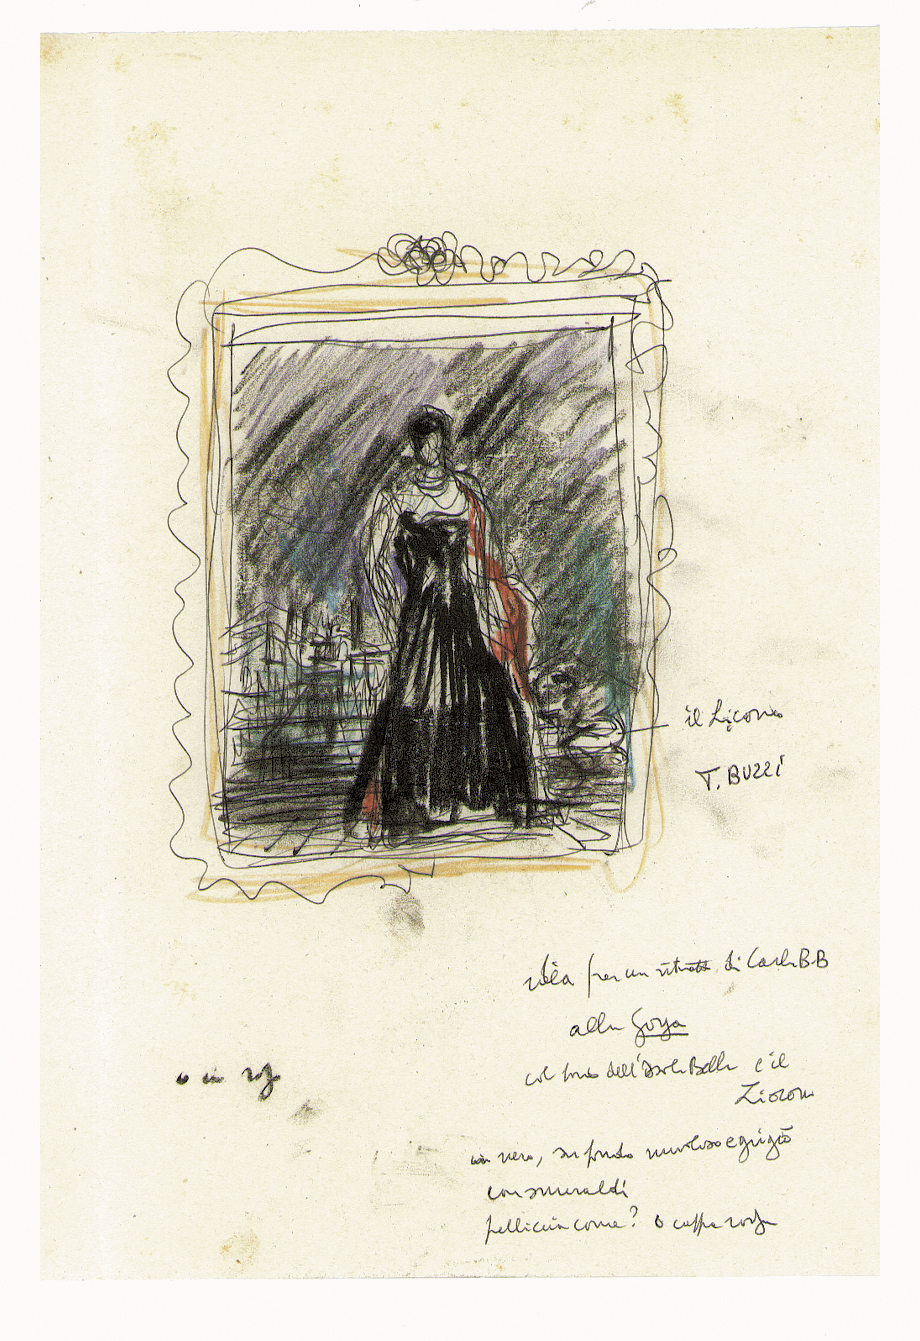 il Licorno
T. BUZZI
idea per un ritratto di Carla B.B
alla Goya
col fondo dell'Isola Bella e il
in nero, su fondo nuvoloso e grigio
con smeraldi
pelliccia come? o cappa rossa
o in